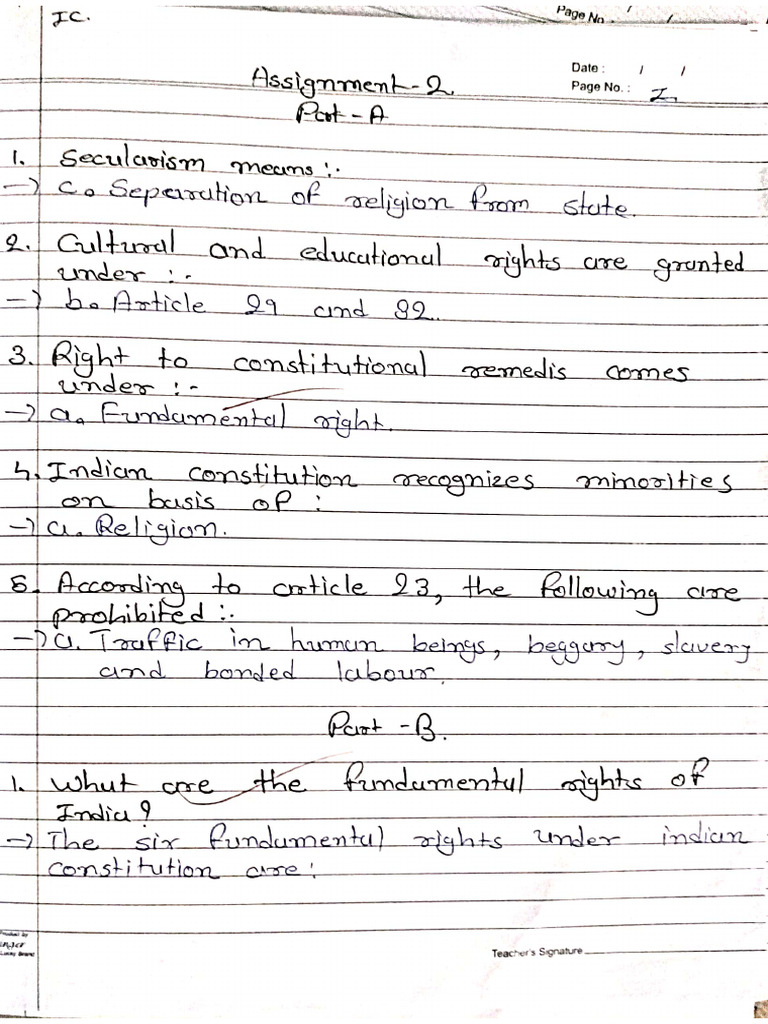 IC.
Page No. / /
Date : / /
Assignment-2.
Page No. : I
Part-A
1. Secularism means :-
-> c. Separation of religion from state.
2. Cultural and educational rights are granted
under :-
-> b. Article 29 and 32.
3. Right to constitutional remedis comes
under :-
-> a. Fundamental right.
4. Indian constitution recognizes minorities
on basis of :
-> a. Religion.
5. According to article 23, the following are
prohibited :-
-> a. Traffic in human beings, beggary, slavery
and bonded labour.
Part-B.
1. What are the fundamental rights of
India?
-> The six fundamental rights under indian
constitution are:
Product by
Luxey Brand
Teacher's Signature